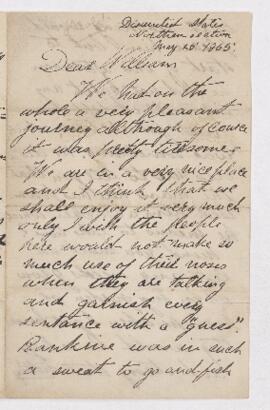 Disunited States
Northern section
May 26th 1865.
Dear William
We had on the
whole a very pleasant
journey although of course
it was pretty tiresome.
We are in a very nice place
and I think that we
shall enjoy it very much
only I wish the people
here would not make so
much use of their noses
when they are talking
and garnish every
sentence with a "guess".
Rankine was in such
a sweat to go and fish